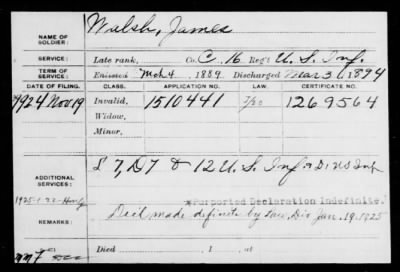 NAME OF SOLDIER: Walsh, James
SERVICE: Late rank, Co. C, 16 Reg't U. S. Inf.
TERM OF SERVICE: Enlisted Mch 4 1889 Discharged Mar 3 1894
DATE OF FILING. CLASS. APPLICATION NO. LAW. CERTIFICATE NO.
1924 Nov 19 Invalid, 1510441 1269564
Widow,
Minor,
ADDITIONAL SERVICES: L 7, D 7 & 12 U. S. Inf & D 1 US Inf
"Purported Declaration Indefinite."
REMARKS: Decl made definite by Law Div Jan. 19. 1925
Died , 1 , at